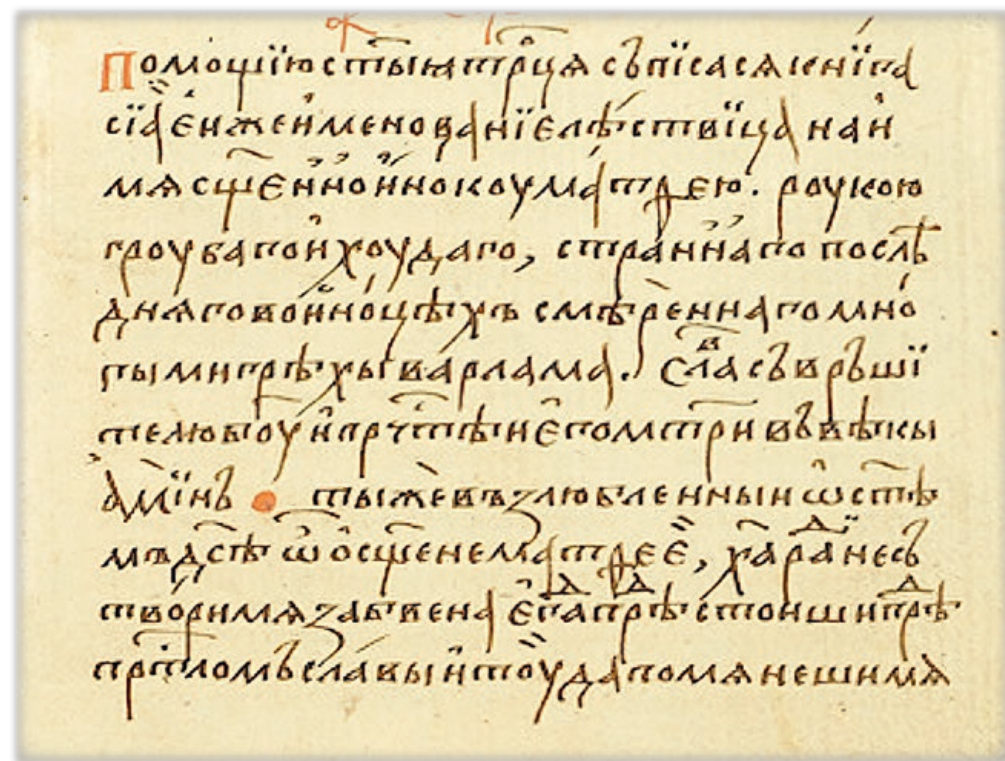 Помощїю ст҃ыѧ тр҃ца съпїсасѧ кнїга
сїа є́ и҆же и҆менованїе лѣствїца на и҆
мѧ сщ҃є́нноиноку матѳею. рукою
груба го и҆ худаго, страннаго послѣ
днѧго во и҆ноцѣхъ смѣренна го мно
гыми грѣхы варлама. Сла́в съвръшї
телю бг҃у и҆ прч҃тѣи є҆го мт҃ри въ вѣкы
а҆мїнь тыже възлюбленныи ѡ ст҃ѣ
мъ дс҃ѣ ѡ҆ ѡ҆сщ҃ене матѳеє҆, ха раⷣ не съ
твори мѧ забвена є҆гдⷣа прⷣѣстоиши прⷣѣ
прⷭ҇тломъ славы и҆ тоу да помѧнеши мѧ